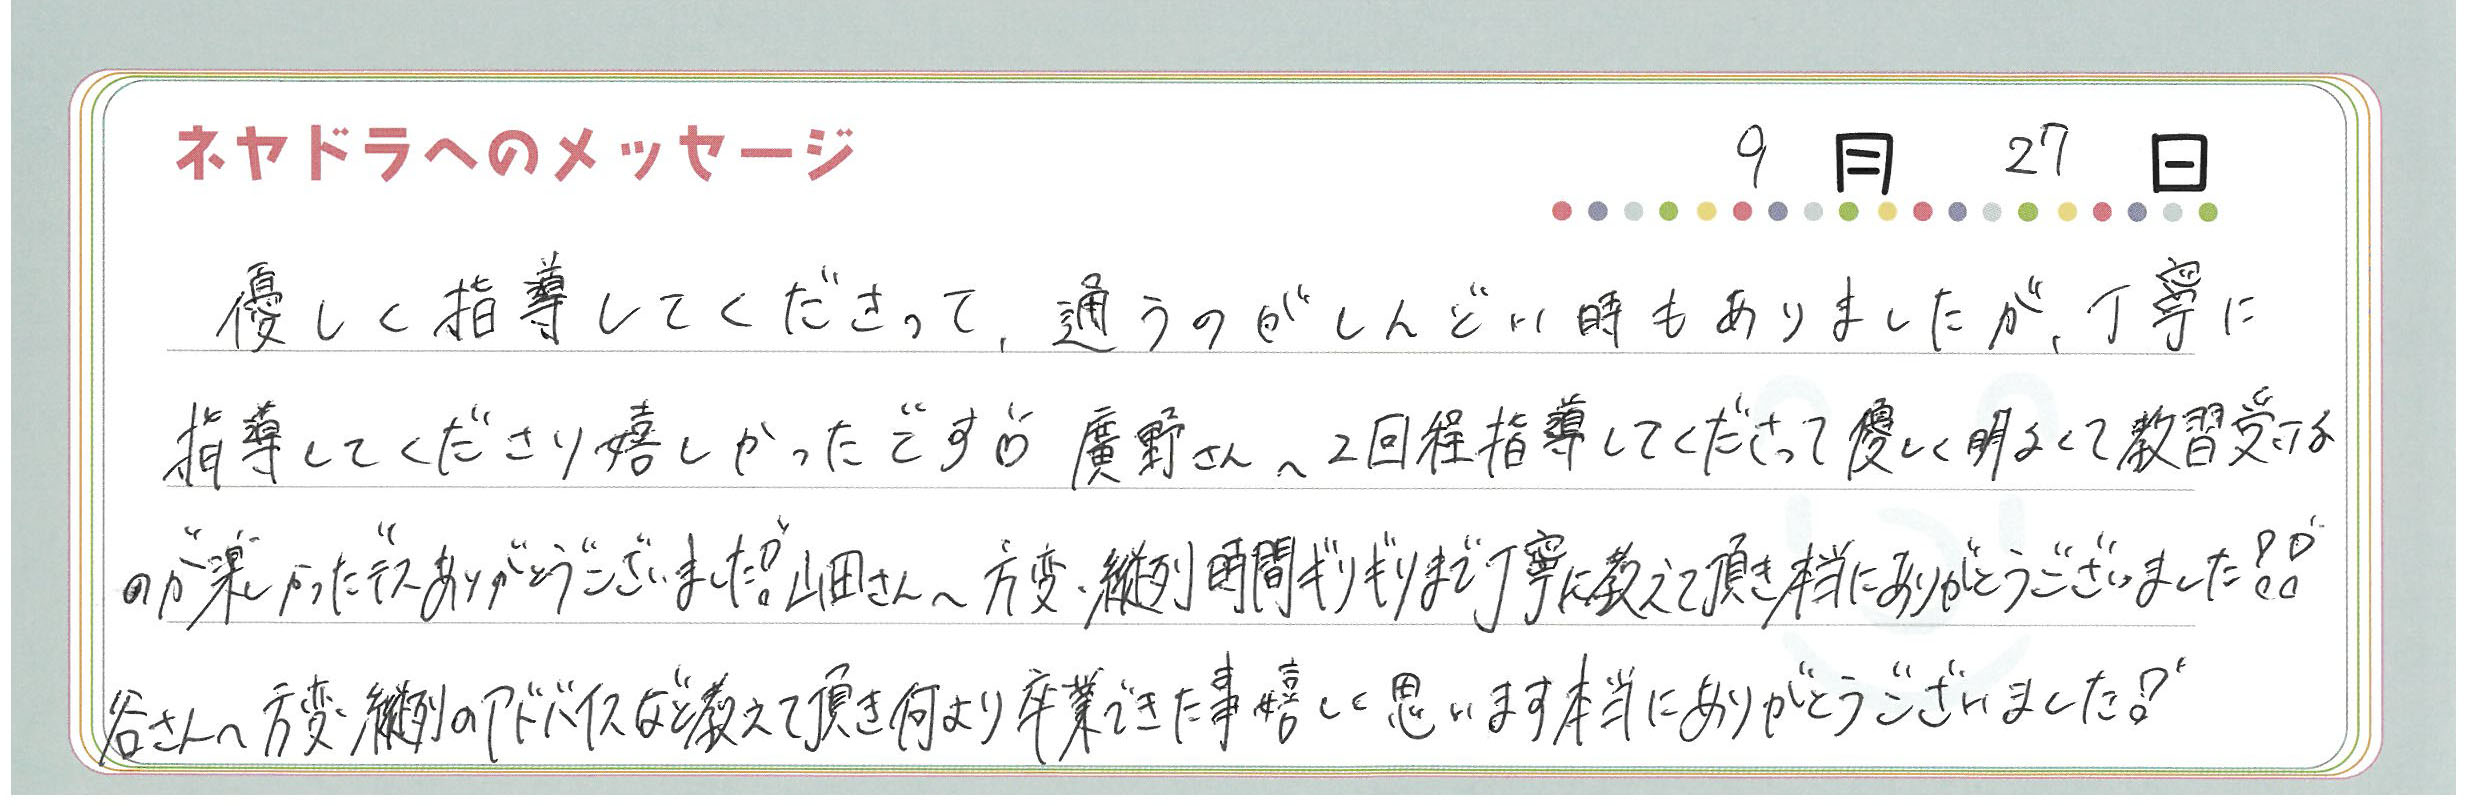 ネヤドラへのメッセージ
9月27日
優しく指導してくださって、通うのがしんどい時もありましたが、丁寧に
指導してくださり嬉しかったです 廣野さんへ2回程指導してくださって優しく明るくて教習受ける
のが楽しかったデスありがとうございました! 山田さんへ 方変・縦列時間ギリギリまで丁寧に教えて頂き本当にありがとうございました!!
谷さんへ方変・縦列のアドバイスなど教えて頂き何より卒業できた事嬉しく思います本当にありがとうございました!